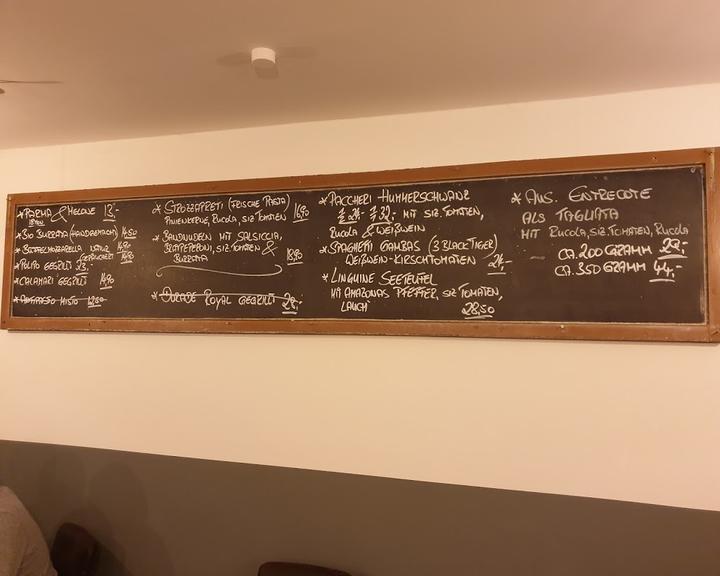 * PARMA & MELONE 13.-
* BIO BURRATA (HANDGEMACHT) 14,50
* BÜFFELMOZZARELLA NATUR 14,90
GERÄUCHERT 14,90
* POLPO GEGRILLT 23.-
* CALAMARI GEGRILLT 14,90
* ANTIPASTO MISTO
* STROZZAPRETI (FRISCHE PASTA)
PINIENKERNE, RUCOLA, SIZ. TOMATEN 16,90
* BANDNUDELN MIT SALSICCIA,
BRATPEPERONI, SIZ. TOMATEN &
BURRATA 18,90
* DORADE ROYAL GEGRILLT
* PACCHERI HUMMERSCHWANZ
MIT SIZ. TOMATEN,
RUCOLA & WEIßWEIN
* SPAGHETTI GAMBAS (3 BLACK TIGER)
WEIßWEIN-KIRSCHTOMATEN 24,-
* LINGUINE SEETEUFEL
MIT AMAZONAS PFEFFER, SIZ. TOMATEN,
LAUCH 28,50
* AUS. ENTRECOTE
ALS TAGLIATA
MIT RUCOLA, SIZ. TOMATEN, RUCOLA
CA. 200 GRAMM 29,-
CA. 350 GRAMM 44,-